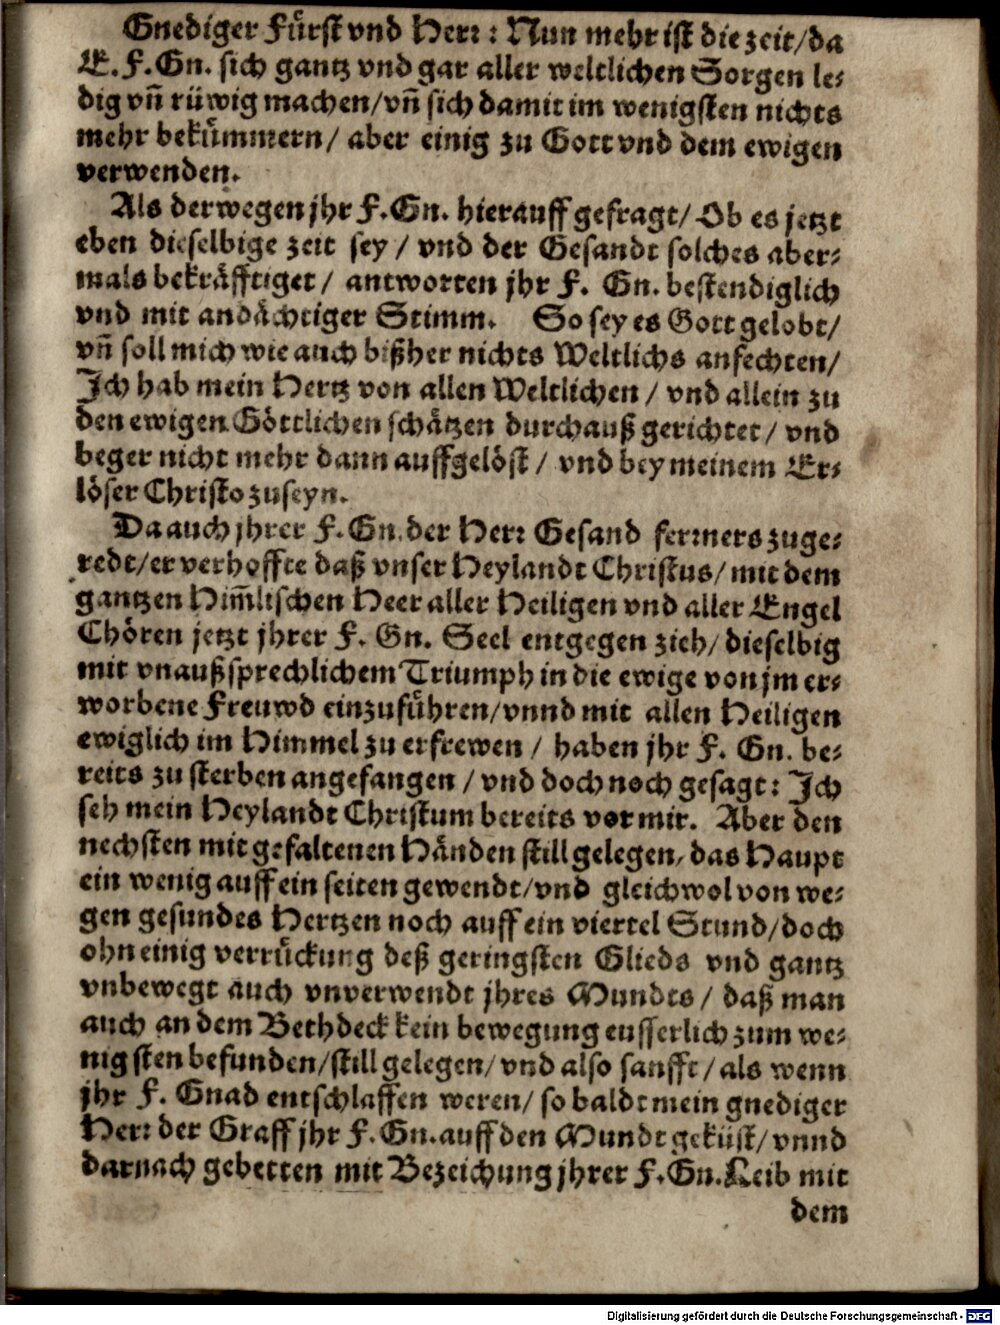 Gnediger Fuͤrst vnd Herꝛ: Nun mehr ist die zeit/da
E. F. Gn. sich gantz vnd gar aller weltlichen Sorgen le⸗
dig vñ ruͤwig machen/vñ sich damit im wenigsten nichts
mehr bekuͤmmern/ aber einig zu Gott vnd dem ewigen
verwenden.
Als derwegen jhr F. Gn. hierauff gefragt/ Ob es jetzt
eben dieselbige zeit sey / vnd der Gesandt solches aber⸗
mals bekraͤfftiget / antworten jhr F. Gn. bestendiglich
vnd mit andaͤchtiger Stimm. So sey es Gott gelobt/
vñ soll mich wie auch bißher nichts Weltlichs anfechten/
Ich hab mein Hertz von allen Weltlichen / vnd allein zu
den ewigen Goͤttlichen schaͤtzen durchauß gerichtet / vnd
beger nicht mehr dann auffgeloͤst / vnd bey meinem Er⸗
loͤser Christo zu seyn.
Da auch jhrer F. Gn. der Herꝛ Gesand ferꝛners zuge⸗
redt/er verhoffte daß vnser Heylandt Christus/ mit dem
gantzen Him̃lischen Heer aller Heiligen vnd aller Engel
Choͤren jetzt jhrer F. Gn. Seel entgegen zieh/ dieselbig
mit vnaußsprechlichem Triumph in die ewige von jm er⸗
worbene Freuwd einzufuͤhren/vnnd mit allen Heiligen
ewiglich im Himmel zu erfrewen / haben jhr F. Gn. be⸗
reits zu sterben angefangen / vnd doch noch gesagt: Ich
seh mein Heylandt Christum bereits vor mir. Aber den
nechsten mit gefaltenen Haͤnden still gelegen, das Haupt
ein wenig auff ein seiten gewendt/vnd gleichwol von we⸗
gen gesundes Hertzen noch auff ein viertel Stund/doch
ohn einig verruͤckung deß geringsten Glieds vnd gantz
vnbewegt auch vnverwendt jhres Mundts / daß man
auch an dem Bethdeck kein bewegung eusserlich zum we⸗
nigsten befunden/still gelegen/ vnd also sanfft / als wenn
jhr F. Gnad entschlaffen weren/ so baldt mein gnediger
Herꝛ der Graff jhr F. Gn. auff den Mundt gekuͤst/ vnnd
darnach gebetten mit Bezeichung jhrer F. Gn. Leib mit
dem
Digitalisierung gefördert durch die Deutsche Forschungsgemeinschaft - DFG